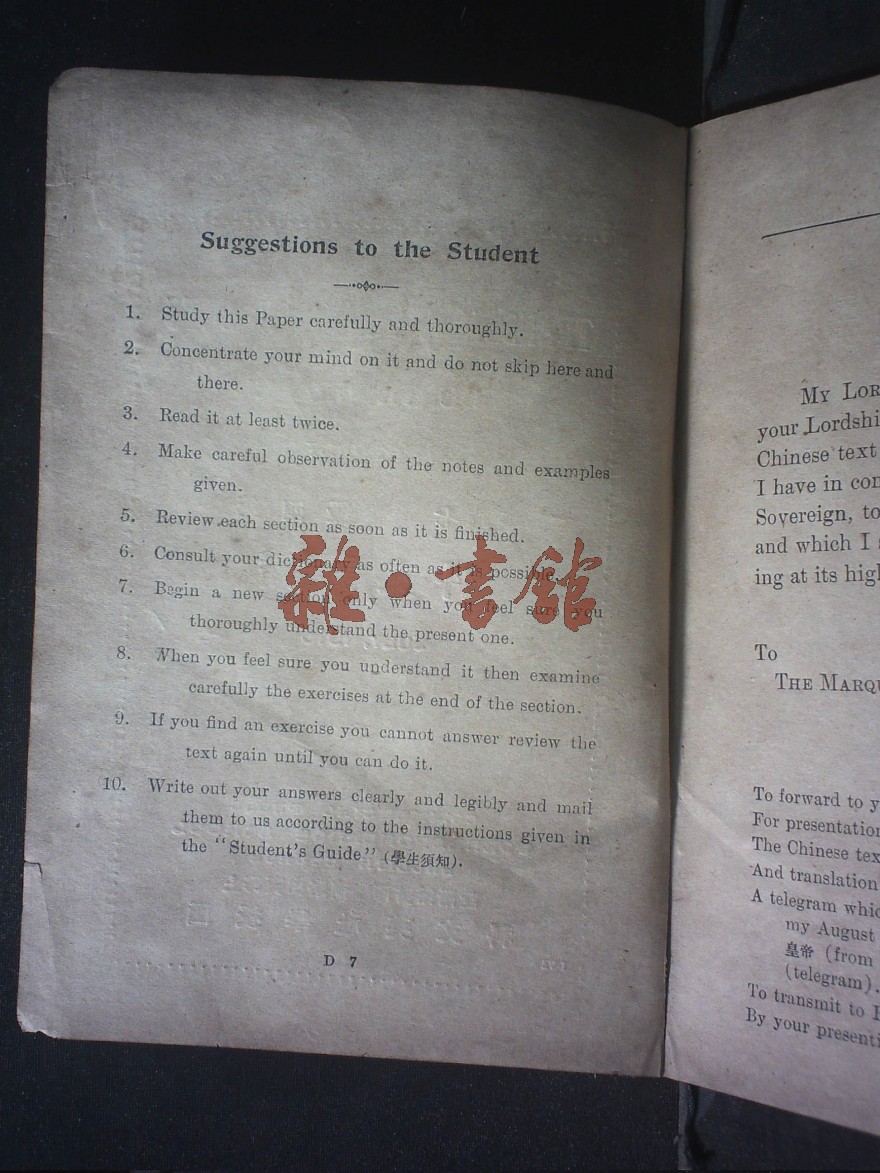 Suggestions to the Student
1. Study this Paper carefully and thoroughly.
2. Concentrate your mind on it and do not skip here and
there.
3. Read it at least twice.
4. Make careful observation of the notes and examples
given.
5. Review each section as soon as it is finished.
6. Consult your dictionary as often as it is possible.
7. Begin a new section only when you feel sure you
thoroughly understand the present one.
8. When you feel sure you understand it then examine
carefully the exercises at the end of the section.
9. If you find an exercise you cannot answer review the
text again until you can do it.
10. Write out your answers clearly and legibly and mail
them to us according to the instructions given in
the "Student's Guide" (學生須知).
D 7
雜·書館
MY
your
Chinese text
I have in
Sovereign, to
and which I
ing at its
To
THE
To forward to
For presentation
The Chinese
And translation
A telegram
my August
皇帝 (from
(telegram).
To transmit to
By your